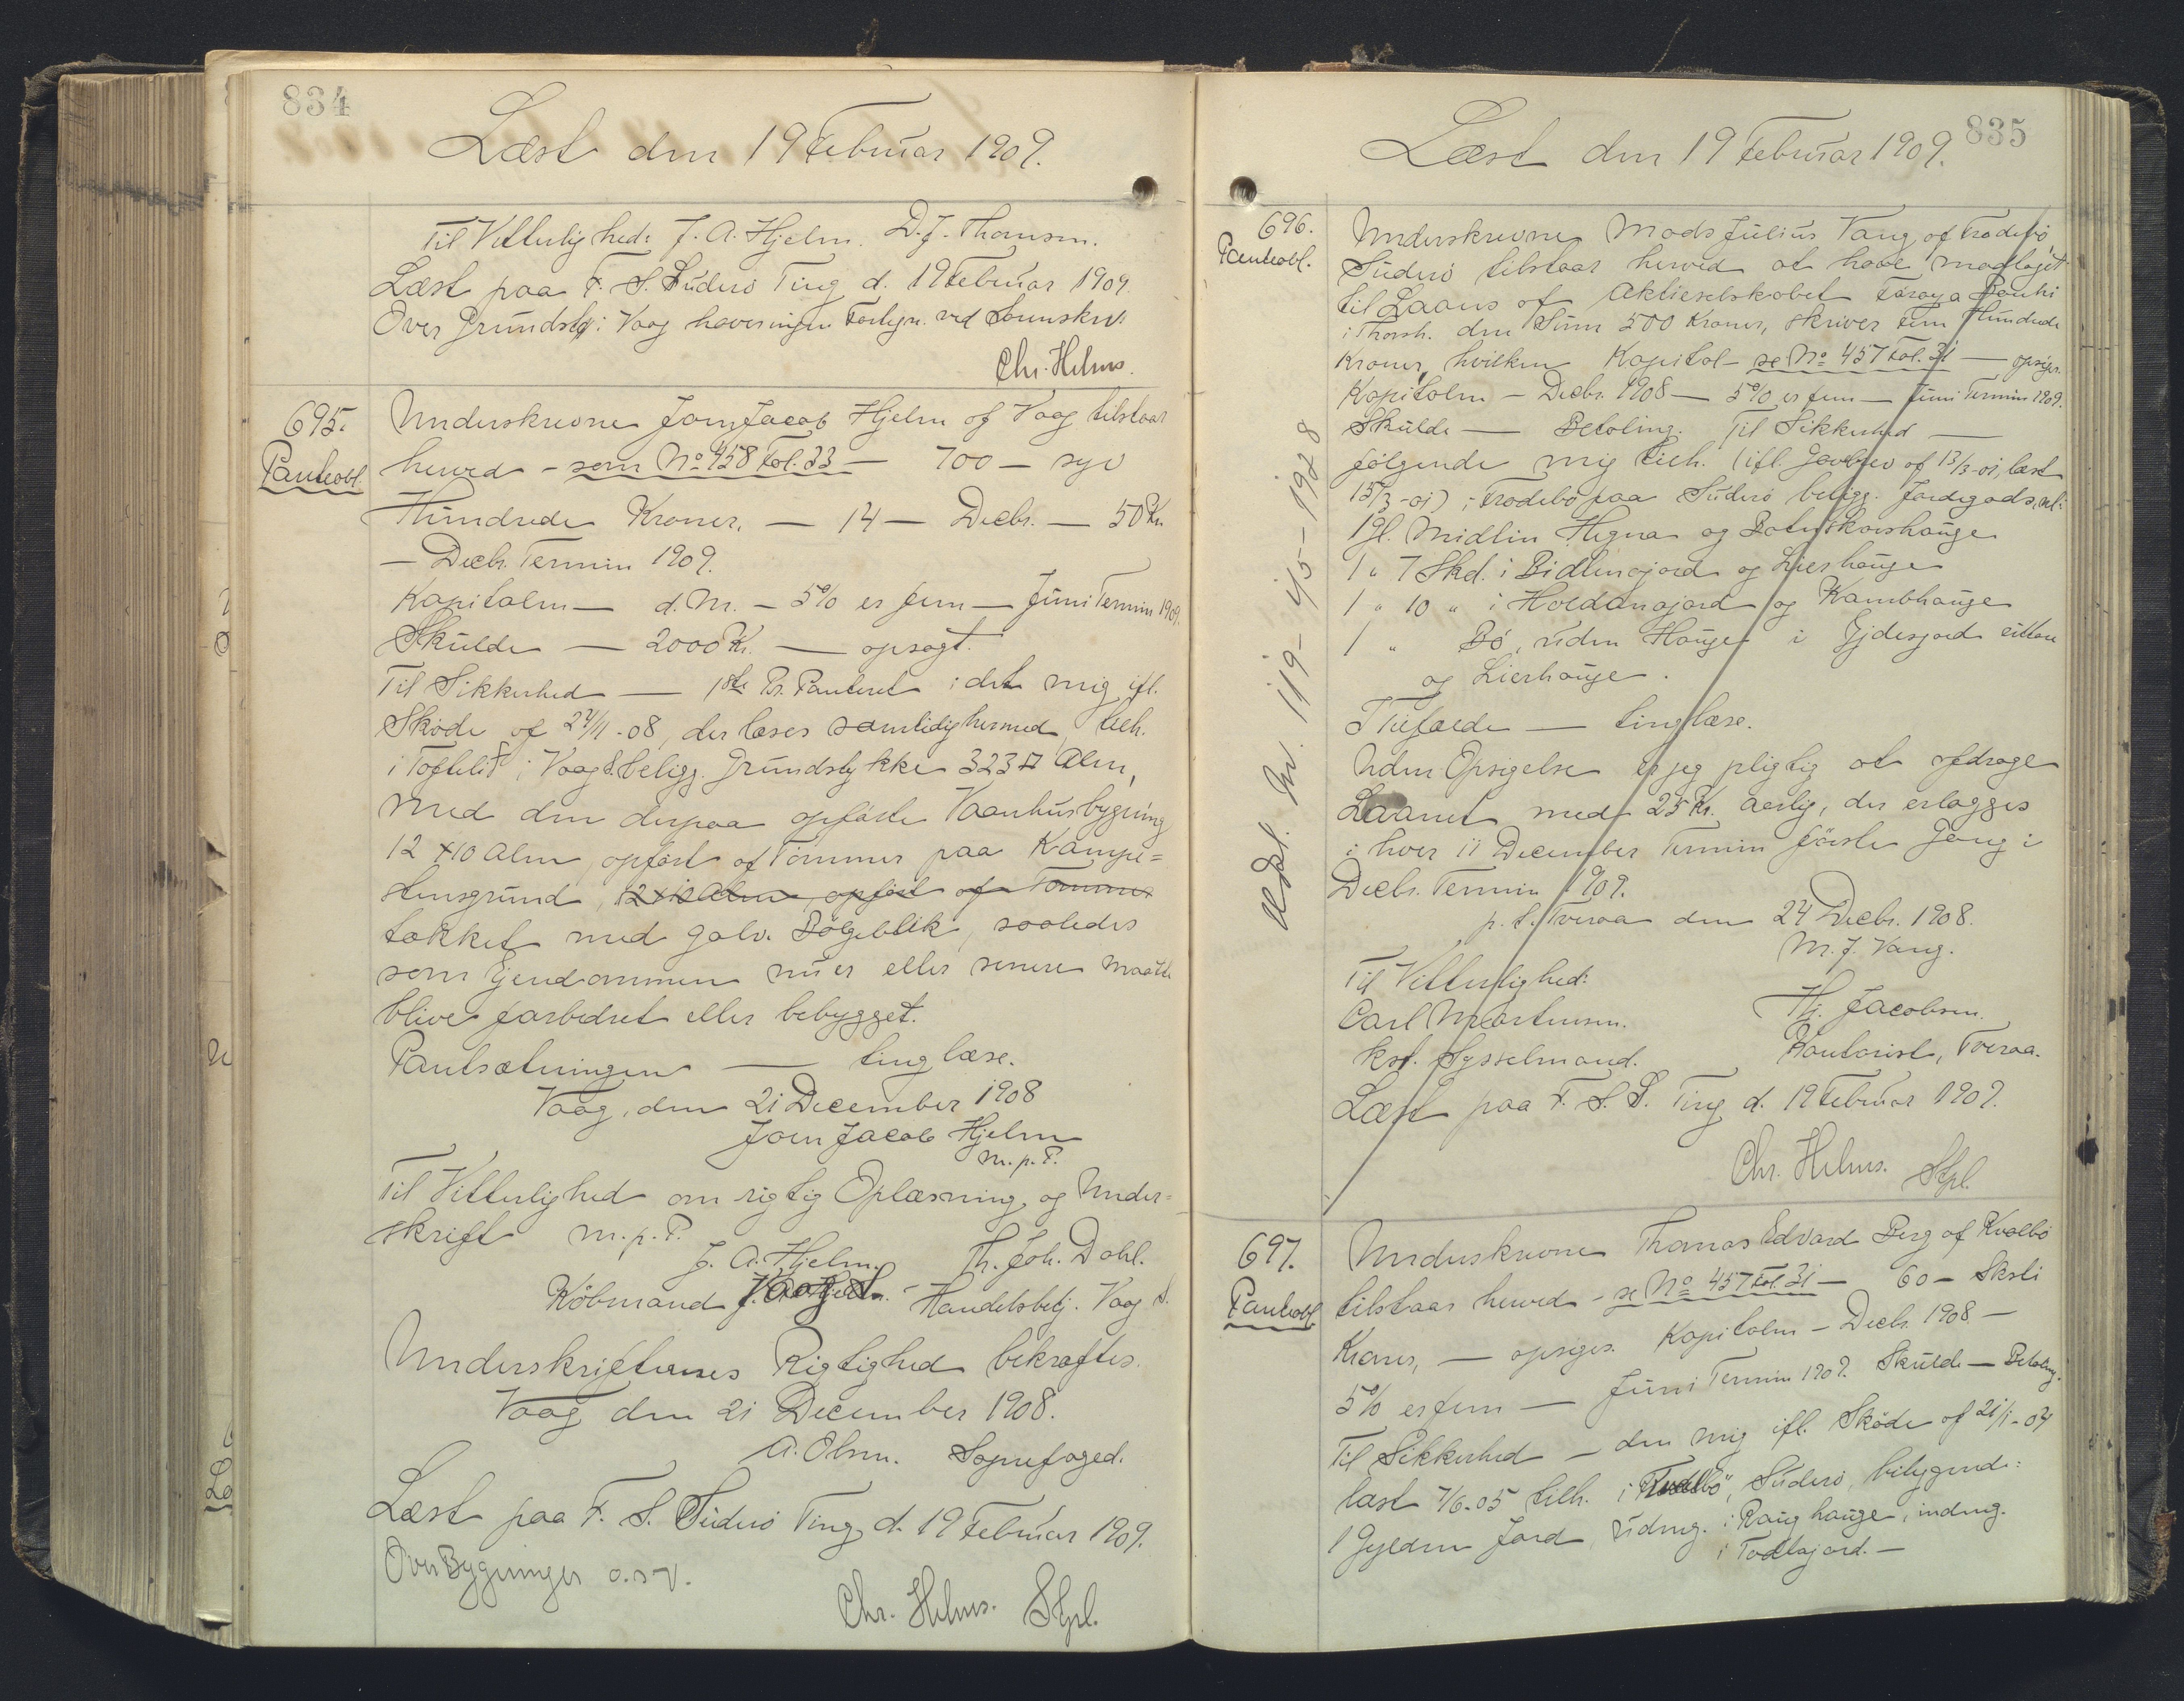 834
Læst den 19 Februar 1909.
Til Vitterlighed: J. A. Hjelm. D. J. Thomsen.
Læst paa F. S. Suderø Ting d. 19 Februar 1909.
Over Grundst. i Vaag haves ingen
Chr. Helms.
695.
Panteobl.
Underskrevne Joen Jacob Hjelm af Vaag tilstaar
herved - som No 458 Fol. 33 - 700 - syv
Hundrede Kroner, - 14 - Decbr. - 50 Kr.
- Decb. Termin 1909.
Kapitalen - d. M. - 5% er fem - Juni Termin 1909.
Skulde - 2000 Kr. - opsagt.
Til Sikkerhed - 1ste Pr. Panteret i det mig ifl.
Skøde af 24/11-08, der læses samtidig hermed, tilh.
i Vaag S. beligg. Grundstykke 323 □ Alen,
med den derpaa opførte Vaanhusbygning
12 x 10 Alen, opført af Tømmer paa Kampe=
stensgrund, 12 x 10 Alen, opført af Tømmer
tækket med galv. Bølgeblik, saaledes
som Ejendommen nu er eller senere maatte
blive forbedret eller bebygget.
Pantsætningen - tinglæse.
Vaag, den 21 December 1908
Joen Jacob Hjelm
m. p. P.
Til Vitterlighed om rigtig Oplæsning og Under=
skrift m. p. P.
J. A. Hjelm. Th. Joh. Dahl.
Købmand Vaag S. Handelsbetj. Vaag S.
Underskrifternes Rigtighed bekræftes.
Vaag den 21 December 1908.
A. Olsen. Sognefoged.
Læst paa F. S. Suderø Ting d. 19 Februar 1909.
Over Bygninger o.s.v.
Chr. Helms. Stpl.
835
Læst den 19 Februar 1909.
696.
Panteobl.
Underskrevne Mads Julius Vang af Frodebø,
Suderø tilstaar herved at have modtaget
til Laans af Aktieselskabet Føroya Banki
i Thorsh. den Sum 500 Kroner, skriver fem Hundrede
Kroner, hvilken Kapital - se No 457 Fol. 31 - opsiges.
Kapitalen - Decbr. 1908 - 5% er fem - Juni Termin 1909.
Skulde - Betaling. Til Sikkerhed -
følgende mig tilh. (ifl. Gavebrev af 13/3-01, læst
15/3-01) i Frodebø paa Suderø beligg. Jordegods, nl:
1 Gl. Midlin Hegna og Hauge
1 " 7 Skd. i og Lierhauge
1 " 10 " i og Kambhauge
1 " Bø, uden Hauge i
og Lierhauge.
I Tilfælde - tinglæse.
Uden Opsigelse er jeg pligtig at afdrage
Laanet med 25 Kr. aarlig, der erlægges
i hver 11 December Termin første Gang i
Decbr. Termin 1909.
p. t. Tveraa den 24 Decbr. 1908.
M. J. Vang.
Til Vitterlighed:
Carl Mortensen. Hj. Jacobsen.
kst. Sysselmand. Kontorist, Tveraa.
Læst paa F. S. S. Ting d. 19 Februar 1909.
Chr. Helms. Stpl.
Udsl. 119 - 1/5 - 1928
697.
Panteobl.
Underskrevne Thomas Edvard Berg af Kvalbø
tilstaar herved - se No 457 Fol. 31 - 60 - Sksti
Kroner, - opsiges. Kapitalen - Decb. 1908 -
5% er fem - Juni Termin 1909. Skulde - Betaling.
Til Sikkerhed - den mig ifl. Skøde af 21/1-04
læst 7/6-05 tilh. i Suderø, beliggende:
1 Gylden Jord, udmg. i Rang hauge, indmg.
i Todlajord. -